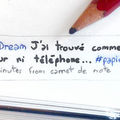 Dream J'ai trouvé comme
ur ni téléphone... #papi
inutes from carnet de note